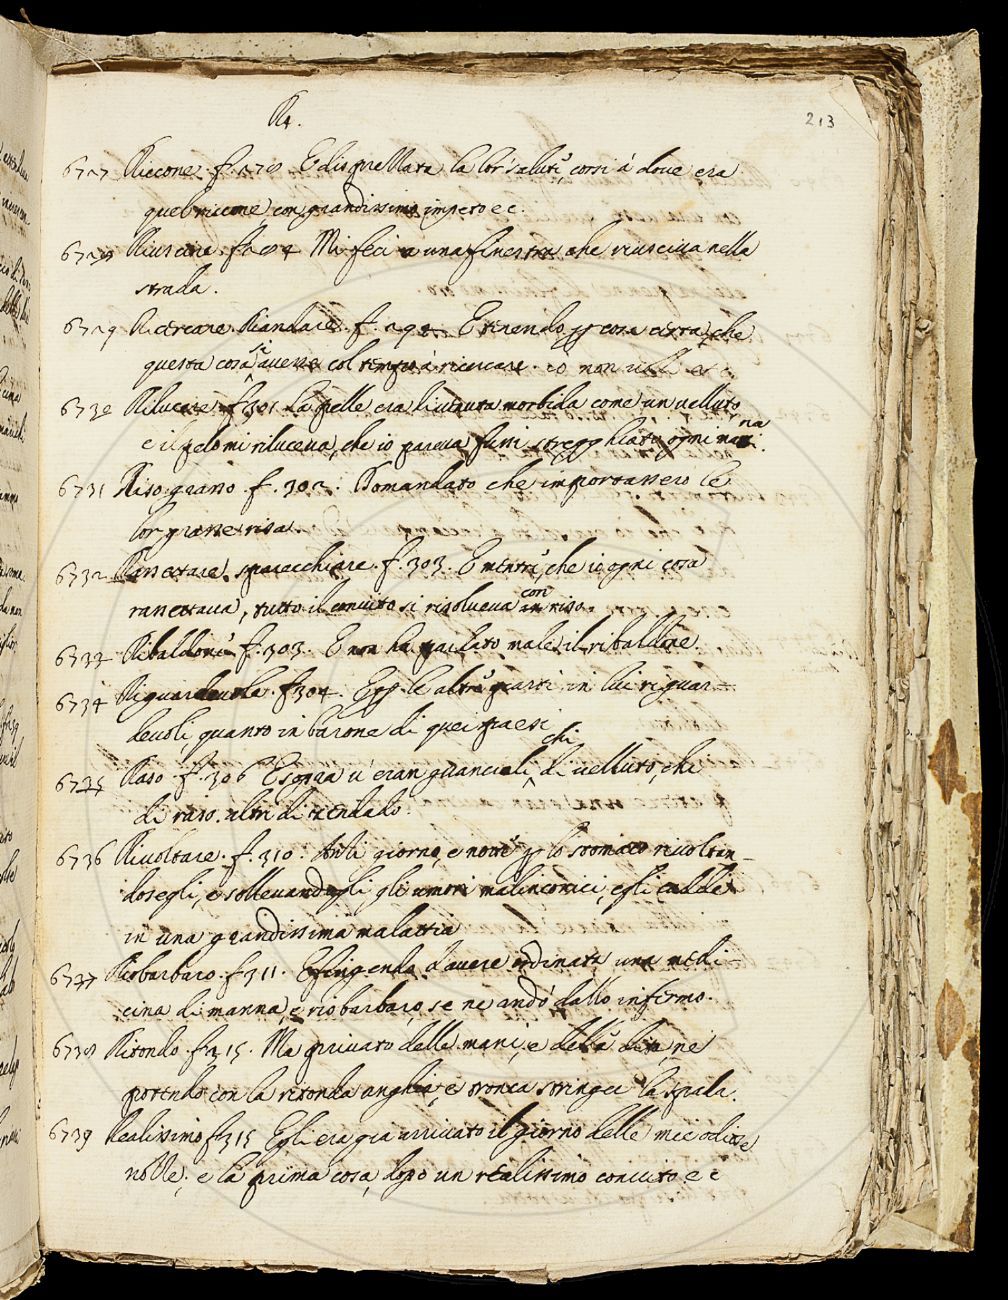 R4.
213
6727 Riccone. f. 270 E disquellata la lor salute, corsi à dove era
quel riccone con grandissimo impeto ec.
6728 Riuscire. f. 284 Mi feci a una finestra che riusciva nella
strada.
6729 Ricercare Riandare. f. 292 E tenendo p cosa certa, che
questa cosa si avesse col tempo à ricercare. io non volli ec
6730 Rilucere f. 301 La pelle era divenuta morbida come un velluto
e il pelo mi riluceva, che io pareva fussi stregghiato ogni mattina.
6731 Riso grasso f. 302. Domandato che importassero le
lor grasse risa.
6732 Rassettare, sparecchiare. f. 303. E mentre, che io ogni cosa
rassettava, tutto il convito si risolveva con riso.
6733 Ribaldone f. 303. E non ha parlato male il ribaldone.
6734 Riguardevole. f. 304. E p le altre parti in lui riguar=
devoli quanto in barone di quei paesi
6735 Raso. f. 306 E sopra v'eran guanciali, chi di velluto, chi
di raso. altri di zendado.
6736 Rivoltare. f. 310. Anti giorno, e notte p lo stomaco rivoltan=
dosegli, e sollevandogli gli umori malinconici, egli cadde
in una grandissima malattia
6737 Riobarbaro. f. 311. E fingendo d'avere ordinata una medi=
cina di manna, e riobarbaro, se ne andò dallo infermo.
6738 Ritondo f. 315. Ma privato delle mani, e delle dita, ne
potendo con la ritonda unghia, e tronca stringer la spada.
6739 Realissimo f. 315 Egli era gia arrivato il giorno delle mie odiose
nozze; e la prima cosa, dopo un realissimo convito ec